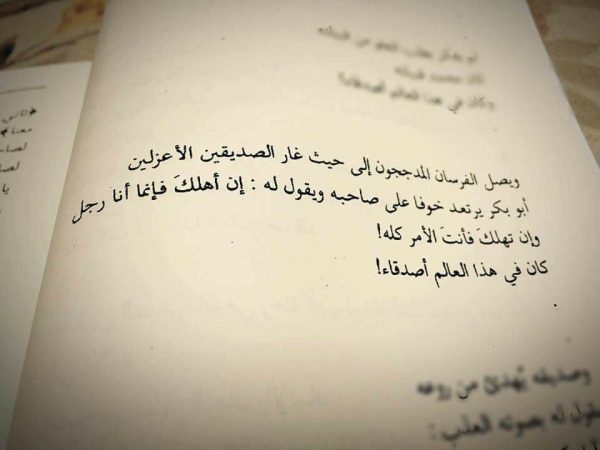 وكان في هذا العالم أصدقاء!
ويصل الفرسان المدججون إلى حيث غار الصديقين الأعزلين
أبو بكر يرتعد خوفا على صاحبه ويقول له : إن أهلكَ فإنما أنا رجل
وإن تهلكَ فأنتَ الأمر كله!
كان في هذا العالم أصدقاء!
وصديقه يُهدئ من روعه
بصوته العذب :